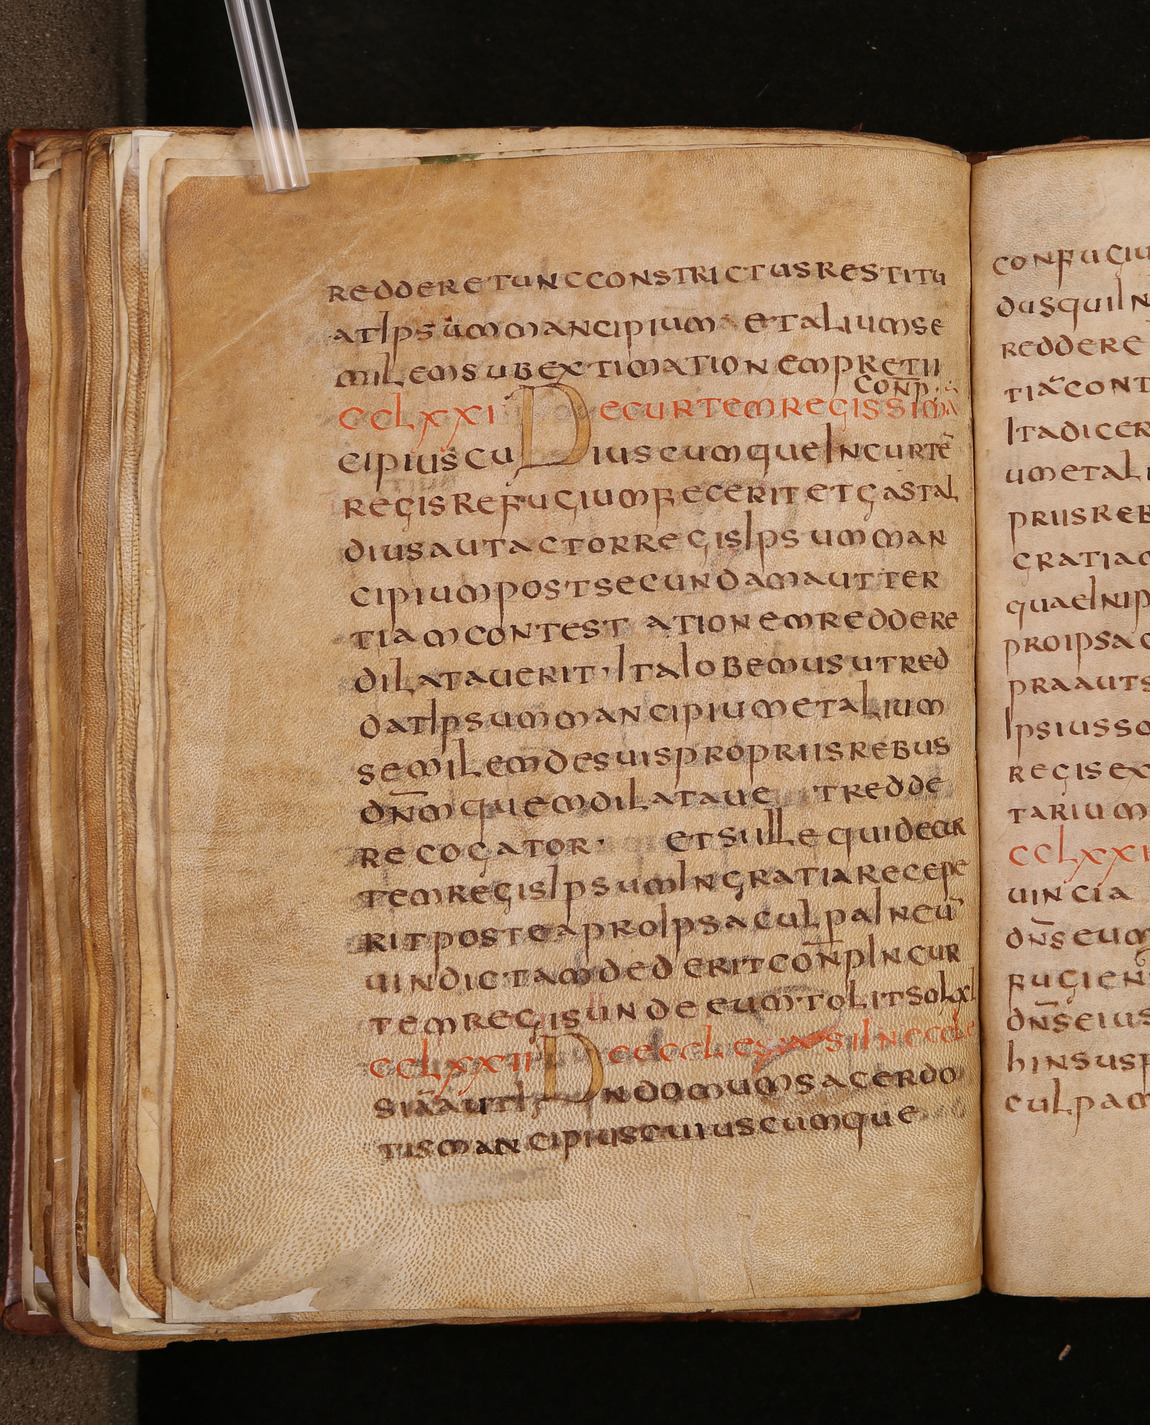 REDDERETUNCCONSTRICTUSRESTITU
ATIPSUMMANCIPIUM ETALIUMSE
MILEMSUBEXTIMATIONEMPRETII
CCLXXI DECURTEMREGISSIMA
CIPIUSCUIUSCUMQUEINCURTĒ
REGISREFUGIUMFECERITETGASTAL
DIUSAUTACTORREGISIPSUMMAN
CIPIUMPOSTSECUNDAMAUTTER
TIAMCONTESTATIONEMREDDERE
DILATAUERIT·ITAIOBEMUSUTRED
DATIPSUMMANCIPIUMETALIUM
SEMILEMDESUISPROPRIISREBUS
DN̄MQUEMDILATAUE TREDDE
RECOGATOR· ETSIILLEQUIDECUR
TEMREGISIPSUMINGRATIARECEPE
RITPOSTEAPROIPSACULPAINEŪ
UINDICTAMDEDERITCON̄PINCUR
TEMREGISUNDEEUMTOLITSOLXL
CCLXXII DEECCLE
SIĀAUTINDOMUMSACERDO
TISMANCIPIUSCUIUSCUMQUE
CONFUGIU
DUSQUIIN
REDDERE
TIACONT
ITADICER
UMETALI
PRIISREB
GRATIAC
QUAEINIP
PROIPSAC
PRAAUTS
IPSIUSSO
REGISEX
TARIUM
CCLXXI
UINCIA
DN̄SEUM
FUGIEN
DN̄SEIUS
HINSUSP
CULPAM